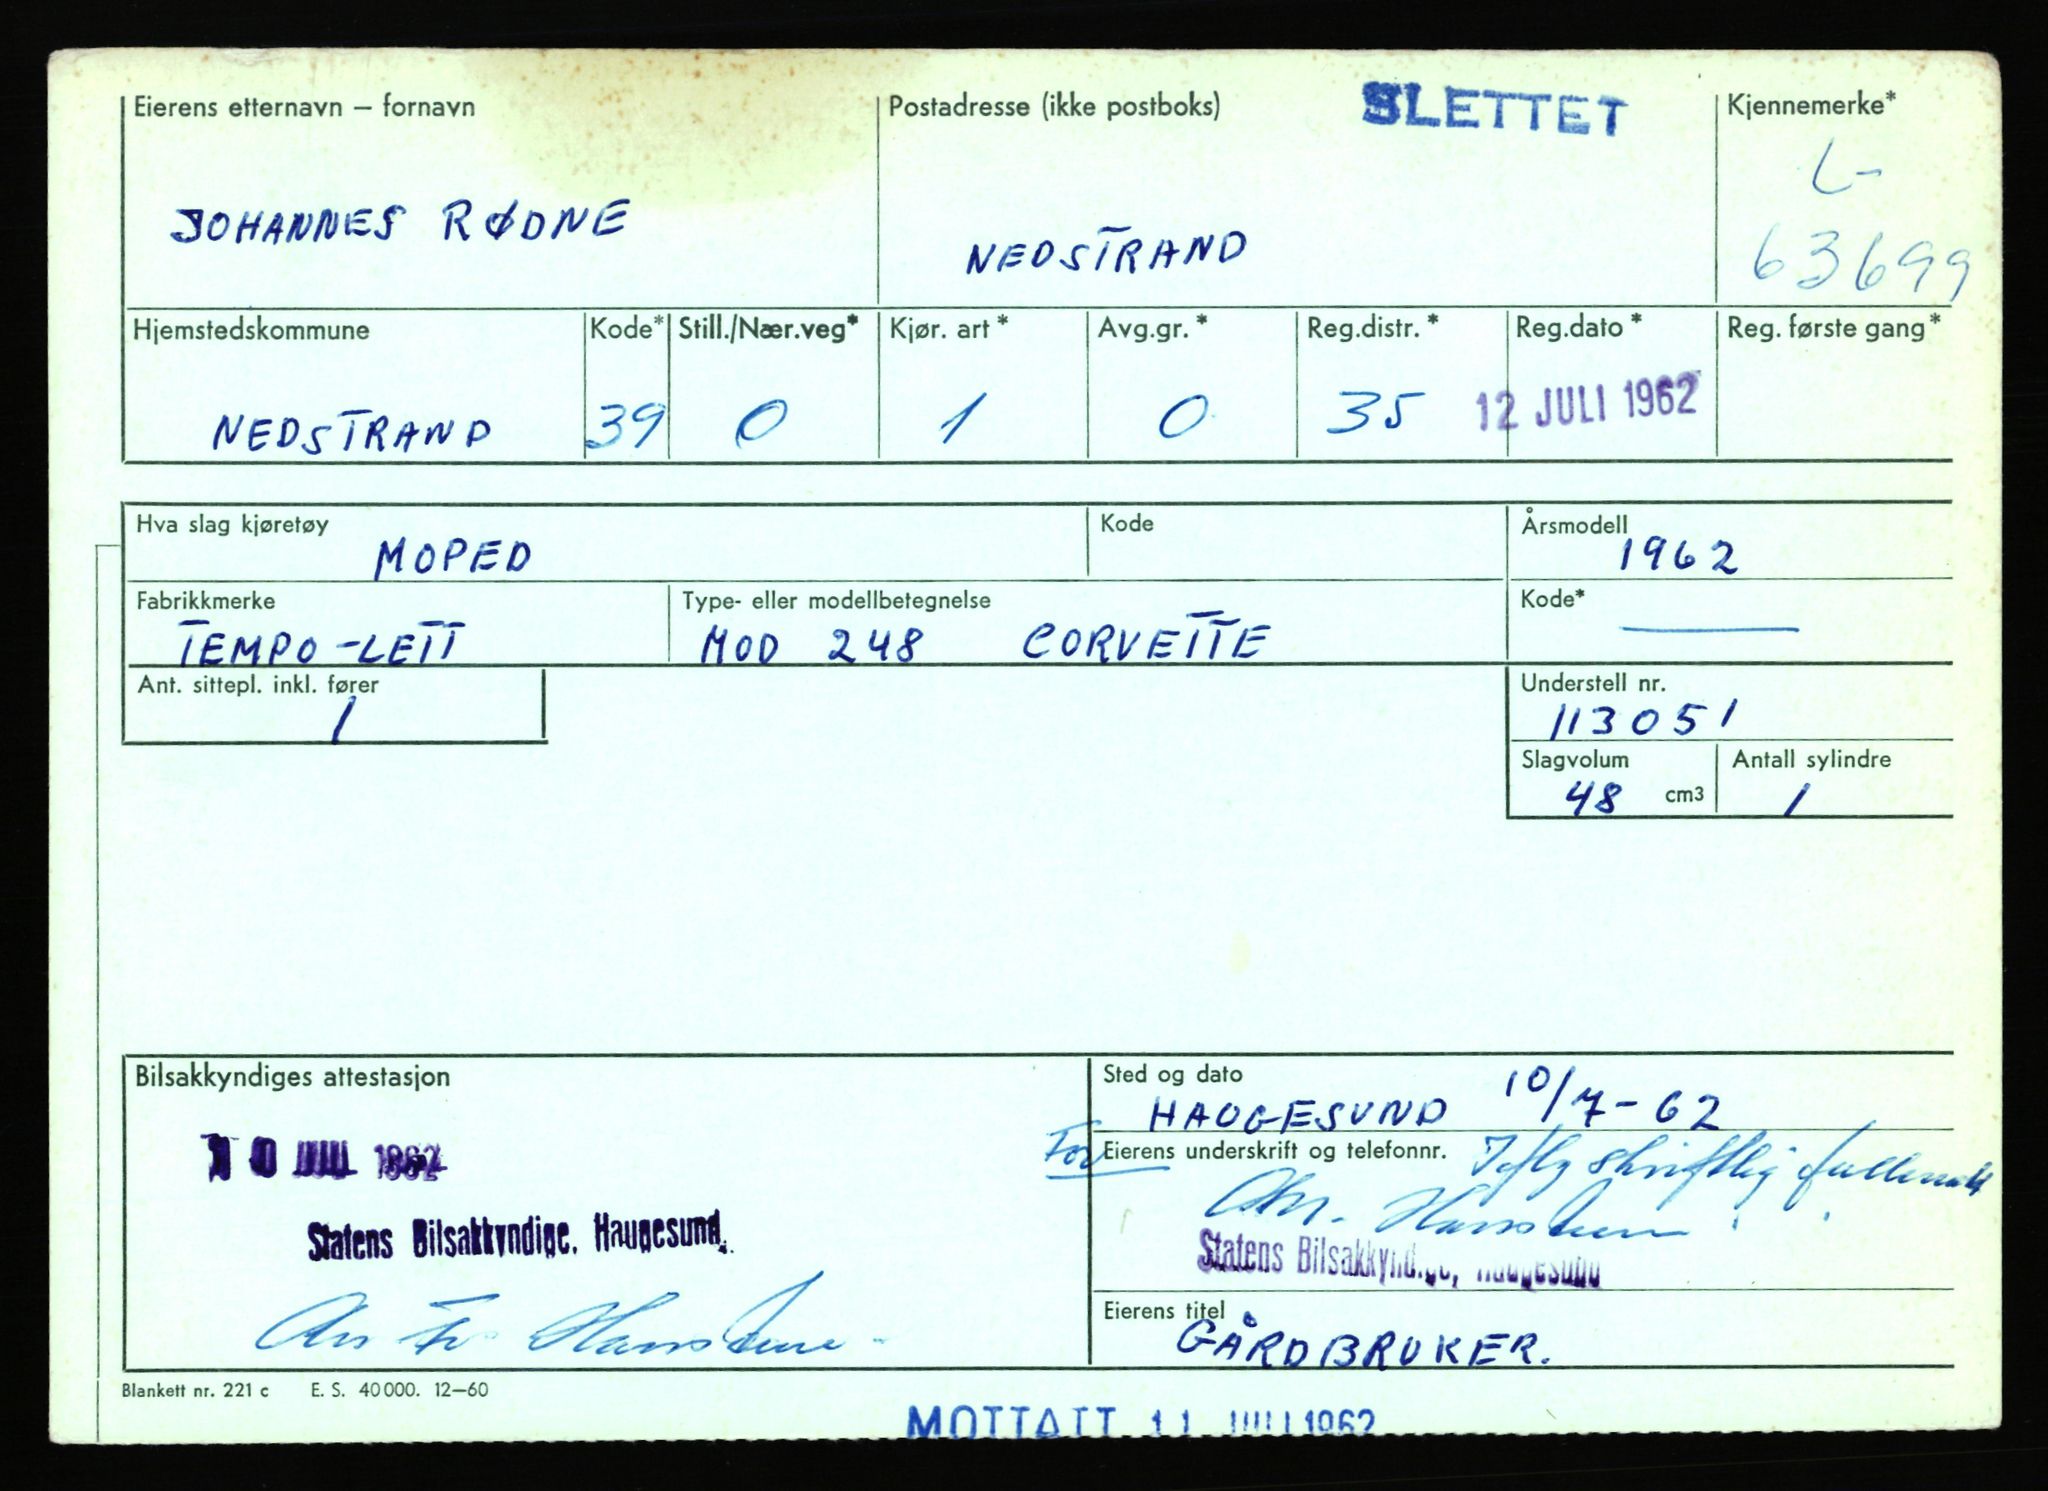 Eierens etternavn – fornavn
Postadresse (ikke postboks)
SLETTET
Kjennemerke*
L-
63699
JOHANNES RØDNE
NEDSTRAND
Hjemstedskommune
Kode*
Still./Nær.veg*
Kjør. art *
Avg.gr. *
Reg.distr. *
Reg.dato *
Reg. første gang*
NEDSTRAND
39
0
1
0
35
12 JULI 1962
Hva slag kjøretøy
MOPED
Kode
Årsmodell
1962
Fabrikkmerke
TEMPO-LETT
Type- eller modellbetegnelse
MOD 248 CORVETTE
Kode*
Ant. sittepl. inkl. fører
1
Understell nr.
113051
Slagvolum
48 cm3
Antall sylindre
1
Bilsakkyndiges attestasjon
10 JUL 1962
Statens Bilsakkyndige, Haugesund.
Sted og dato
HAUGESUND 10/7-62
For
Eierens underskrift og telefonnr.
Iflg skriftlig fullmakt
Statens Bilsakkyndige, Haugesund
Eierens titel
GÅRDBRUKER.
Blankett nr. 221 c E. S. 40 000. 12–60
MOTTATT 11 JULI 1962